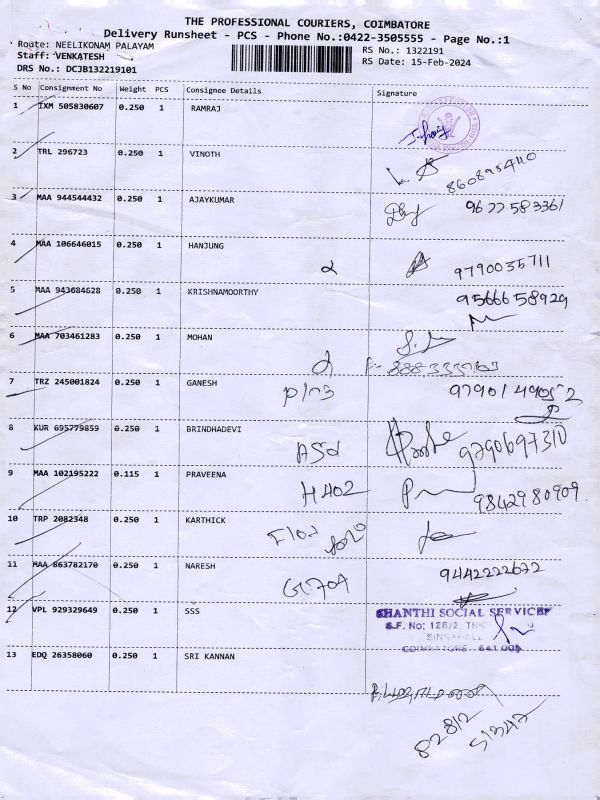 THE PROFESSIONAL COURIERS, COIMBATORE
Delivery Runsheet - PCS - Phone No.:0422-3505555 - Page No.:1
Route: NEELIKONAM PALAYAM
RS No.: 1322191
Staff: VENKATESH
RS Date: 15-Feb-2024
DRS No.: DCJB132219101
S No Consignment No Weight PCS Consignee Details Signature
1 IXM 505830607 0.250 1 RAMRAJ
2 TRL 296723 0.250 1 VINOTH
8608954110
3 MAA 944544432 0.250 1 AJAYKUMAR
9677583361
4 MAA 106646015 0.250 1 HANJUNG
9790035711
5 MAA 943684628 0.250 1 KRISHNAMOORTHY
9566658929
6 MAA 703461283 0.250 1 MOHAN
7 TRZ 245001824 0.250 1 GANESH
8 KUR 695779859 0.250 1 BRINDHADEVI
9790697310
9 MAA 102195222 0.115 1 PRAVEENA
H402
9842980909
10 TRP 2082348 0.250 1 KARTHICK
11 MAA 863782170 0.250 1 NARESH
G704
9442222672
12 VPL 929329649 0.250 1 SSS
SHANTHI SOCIAL SERVICE
S.F. No: 128/2
COIMBATORE 641 005
13 EDQ 26358060 0.250 1 SRI KANNAN
82812
51347